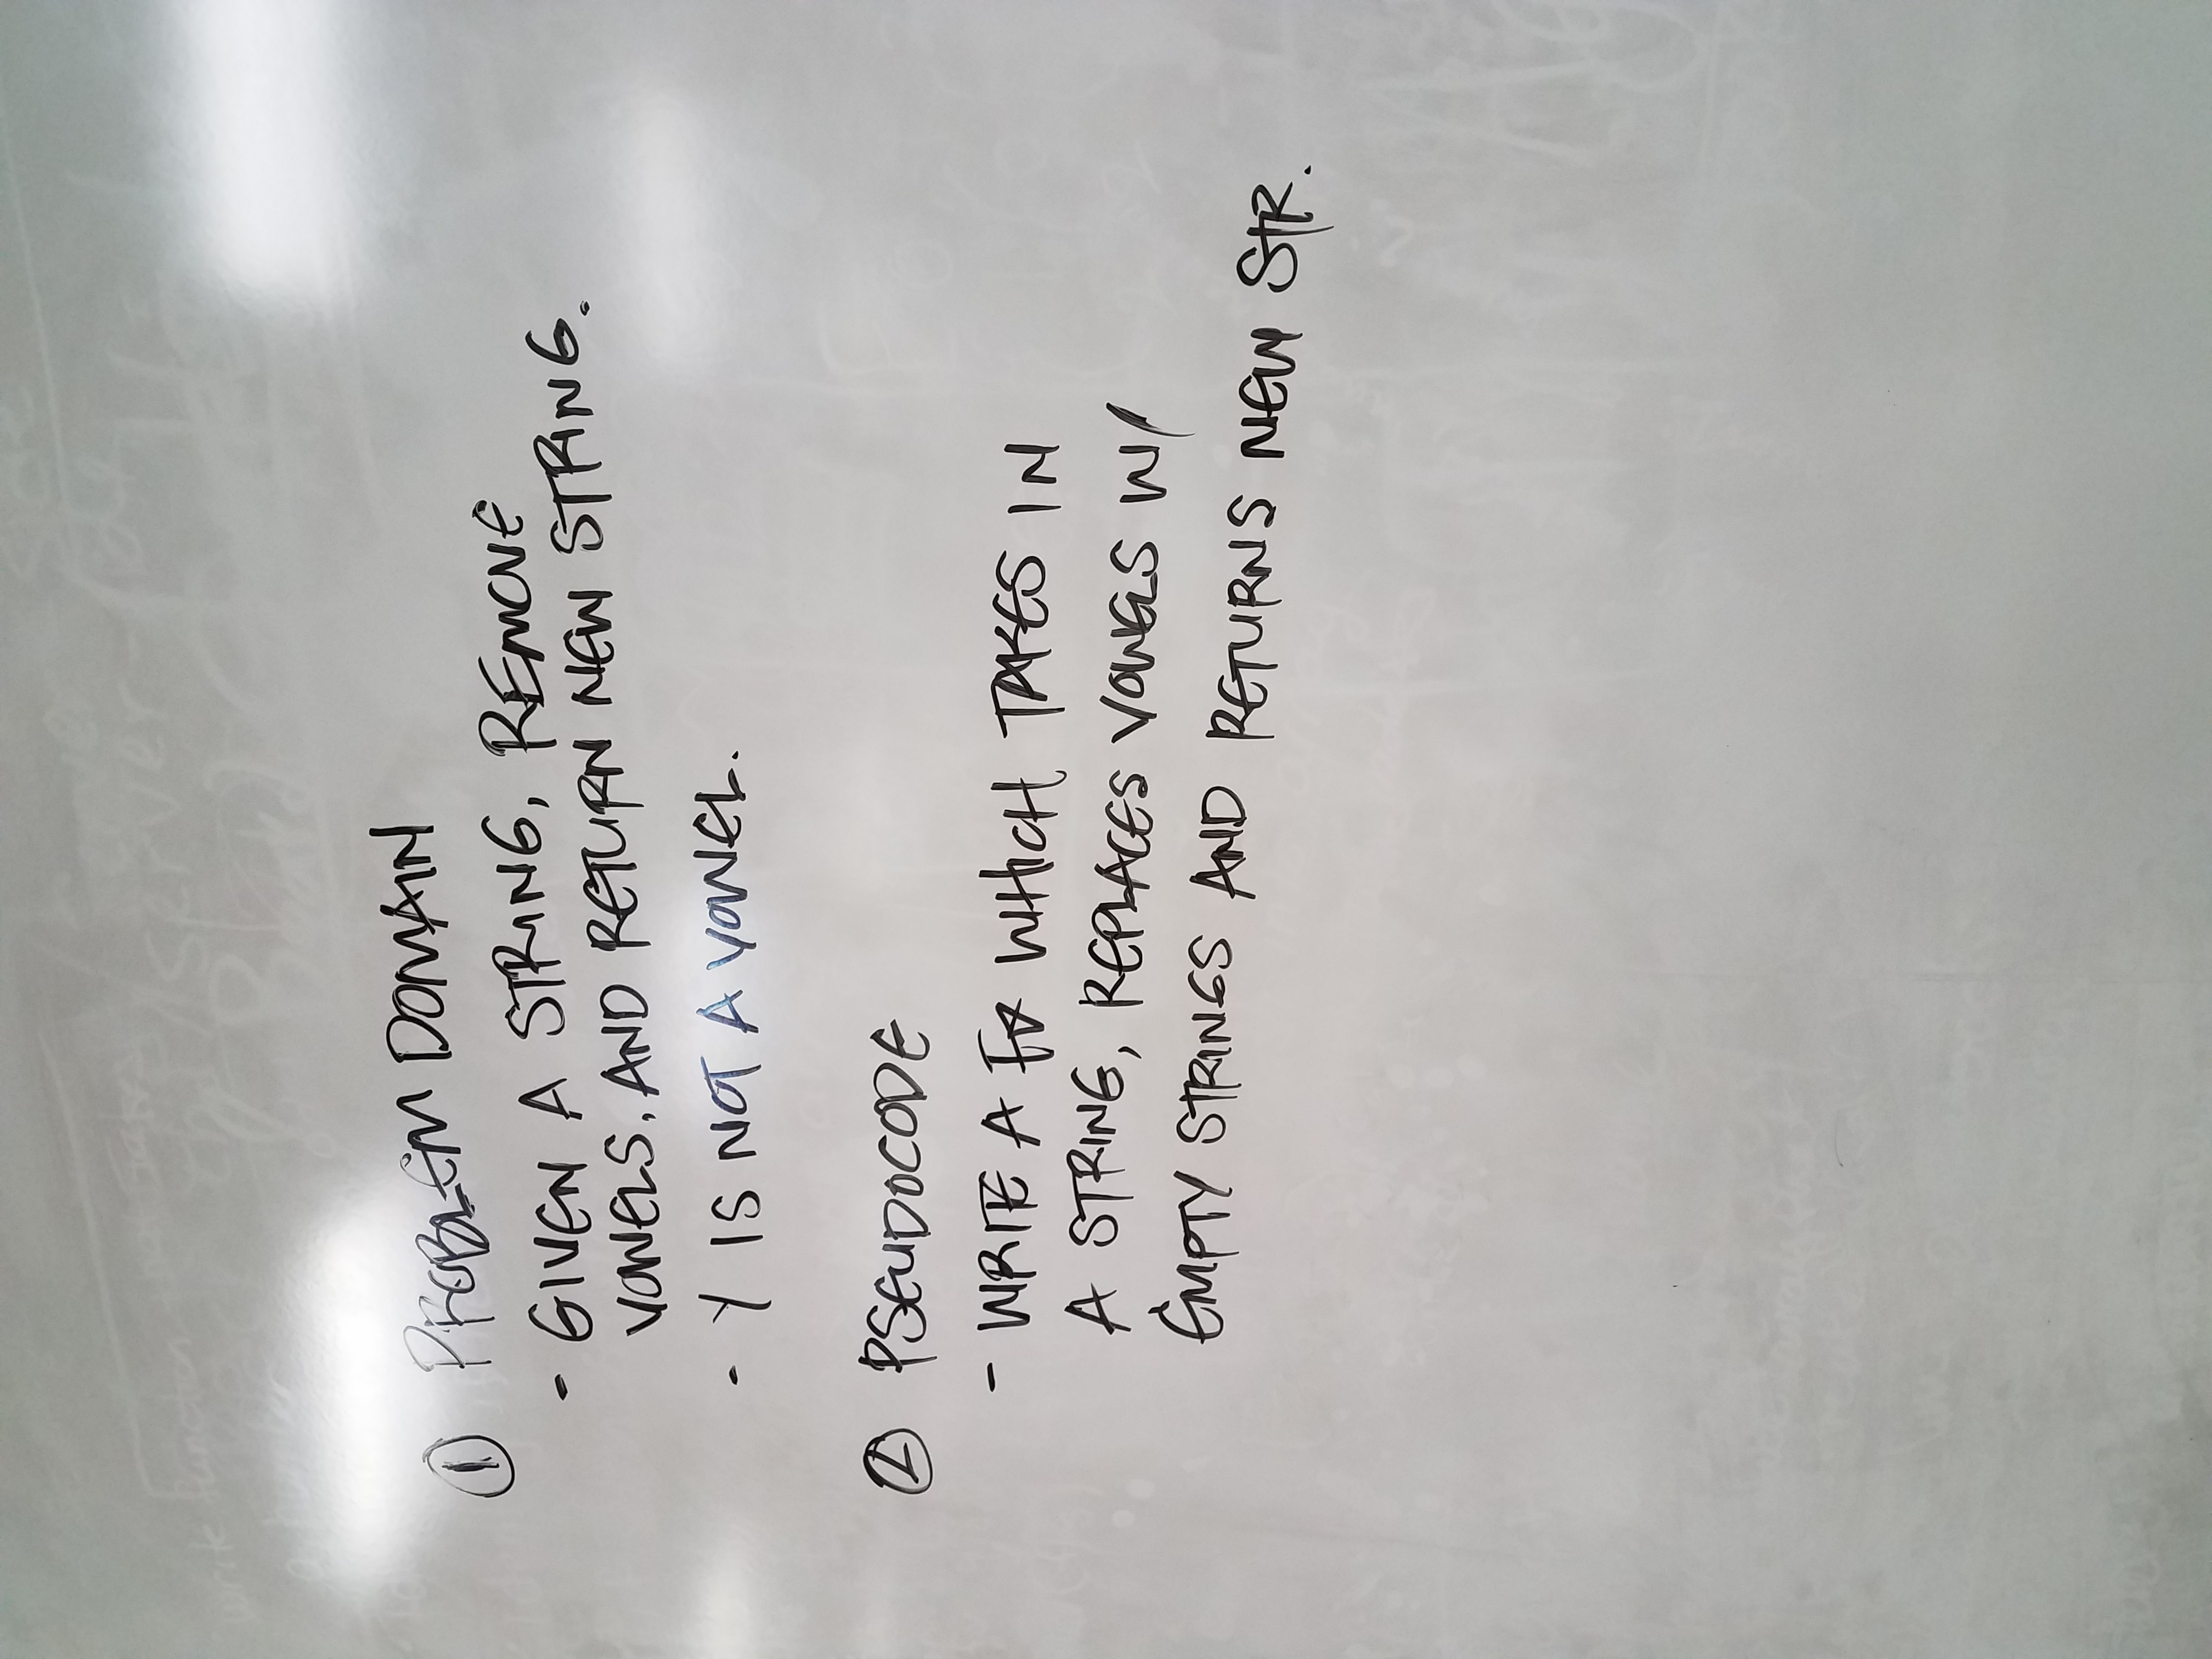 write function that
Server-side
Board
① PROBLEM DOMAIN
- GIVEN A STRING, REMOVE
VOWELS, AND RETURN NEW STRING.
- Y IS NOT A VOWEL.
② PSEUDOCODE
- WRITE A WHICH TAKES IN
A STRING, REPLACES VOWELS W/
EMPTY STRINGS AND RETURNS NEW STR.